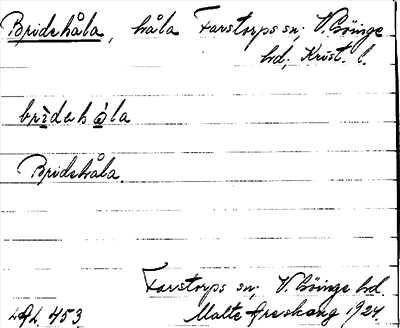 Bridehåla, håla Farstorps sn; V. Göinge
hd; Krist. l.
brìdehå̀la
Bridehåla.
Farstorps sn; V. Göinge hd.
LAL 453 Malte Areskoug 1924.